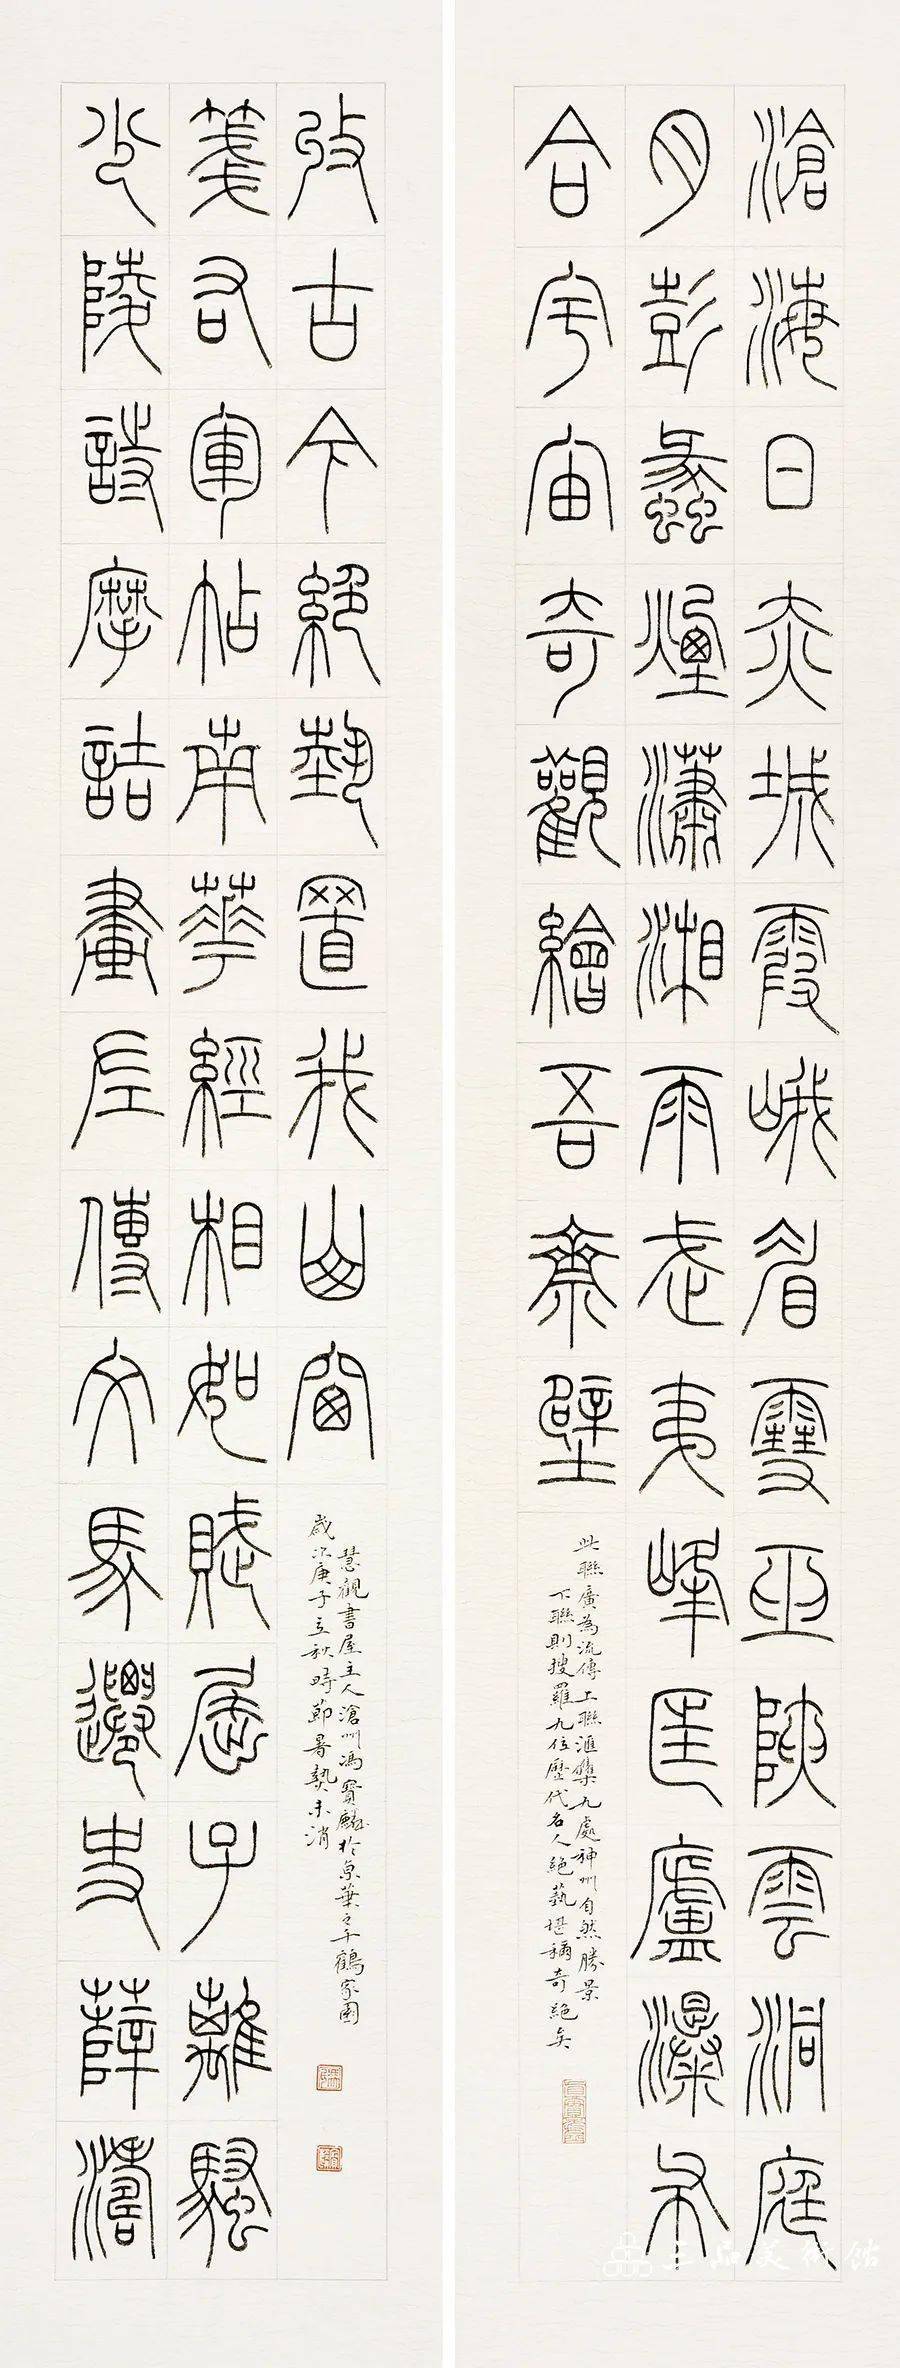 滄海日赤城霞峨眉雪巫陜雲洞庭
月彭蠡煙瀟湘雨武夷峰匡廬瀑布
合宇宙奇觀繪吾齋壁
此聯廣為流傳上聯滙集九處神州自然勝景
下聯則搜羅九位歷代名人絕藝堪稱奇絕矣
少陵詩摩詰畫左傳文馬遷史薛濤
箋右軍帖南華經相如賦屈子離騷
收古今絕埶置我山窗
歲次庚子立秋時節暑熱未消
慧觀書屋主人滄州馮寶麟於京華之千鶴家園
三品美術館